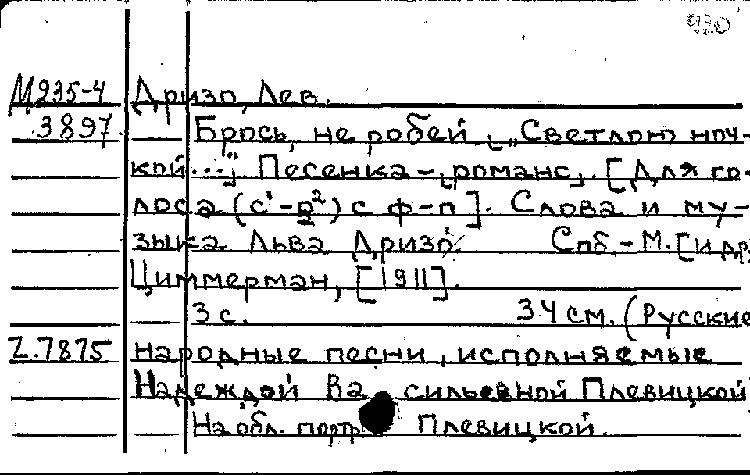 930
М235-4 Дризо, Лев.
3897 Брось, не робей [„Светлою ноч-
кой..."]. Песенка-[романс]. [Для го-
лоса (с¹-g²) с ф-п]. Слова и му-
зыка Льва Дризо. Спб.-М. [и др.]
Циммерман, [1911].
3 с. 34 см. (Русские
Z.7875 народные песни, исполняемые
Надеждой Васильевной Плевицкой)
На обл. портр. Плевицкой.